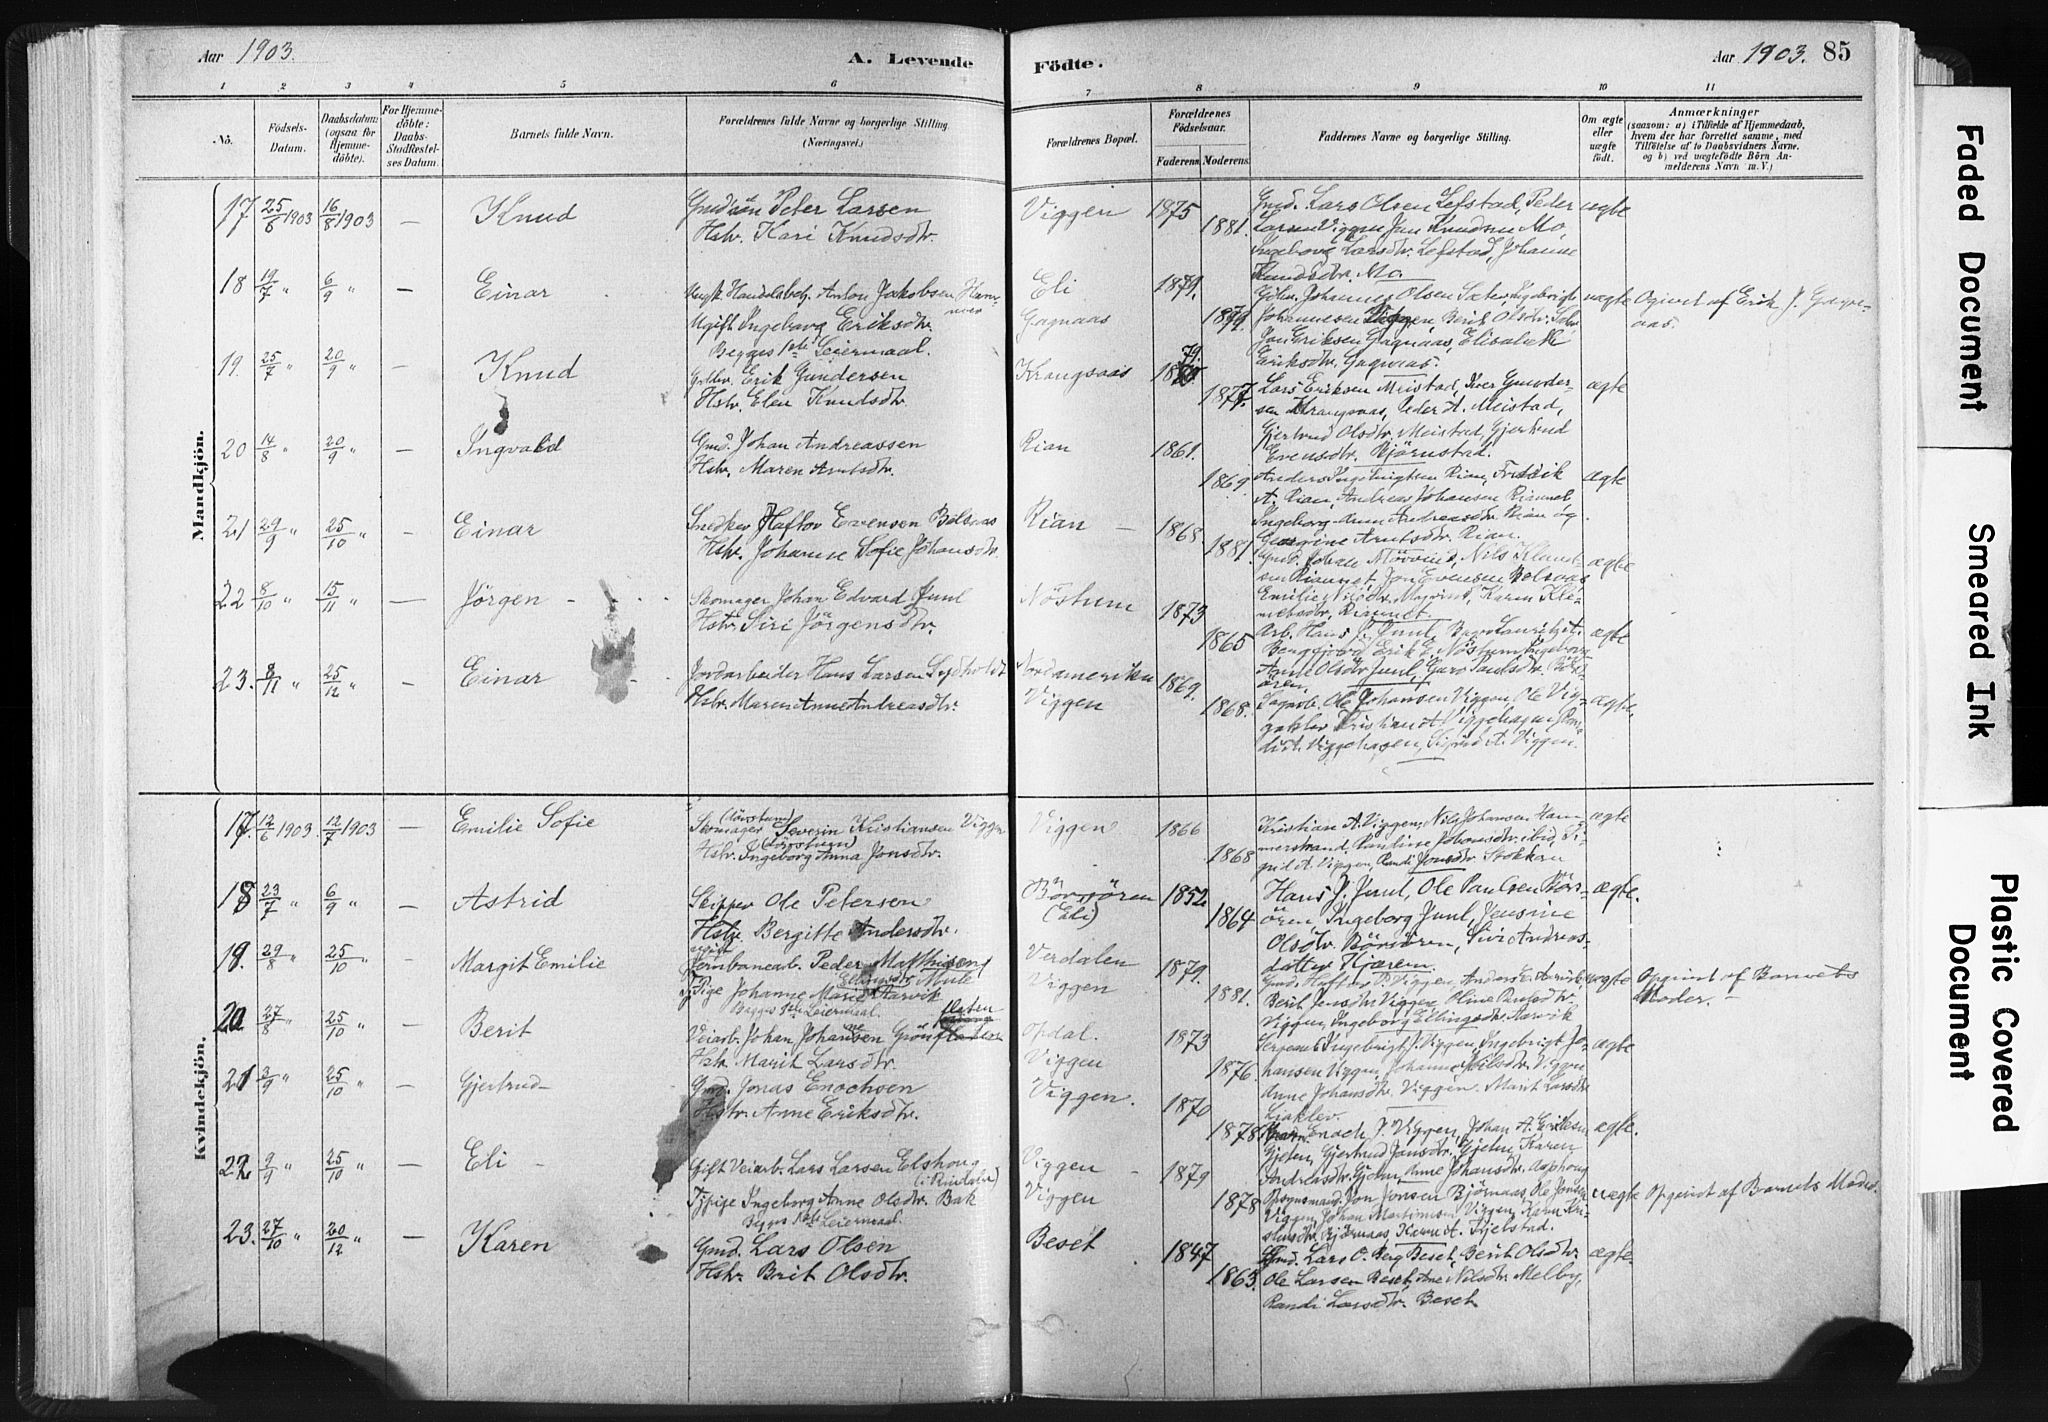 Aar 1903.
A. Levende Födte.
Aar 1903. 85
1 2 3 4 5 6 7 8 9 10 11
No.
Födsels-Datum.
Daabsdatum (ogsaa for Hjemmedöbte).
For Hjemmedöbte: Daabs-Stadfæstelses Datum.
Barnets fulde Navn.
Forældrenes fulde Navne og borgerlige Stilling. (Næringsvei.)
Forældrenes Bopæl.
Forældrenes Födselsaar.
Faderens. Moderens.
Faddernes Navne og borgerlige Stilling.
Om ægte eller uægte födt.
Anmærkninger
(saasom: a) i Tilfælde af Hjemmedaab, hvem der har forrettet samme, med Tilföielse af to Daabsvidners Navne, og b) ved uægtefödte Börn Anmelderens Navn m. V.)
Mandkjön.
17 25/6 1903 16/8 1903 — Knud
Gmdsön Peter Larsen
Hstr. Kari Knudsdtr.
Viggen 1875 1881.
Gmd. Lars Olsen Lefstad, Peder
Larsen Viggen, Jon Knudsen Mo,
Ingeborg Larsdtr. Lefstad, Johanne
Knudsdtr. Mo.
ægte
18 19/7 " 6/9 " — Einar
Ungk. Handelsbetj. Anton Jakobsen
Ugift Ingeborg Eriksdtr.
Begges 1ste Leiermaal.
Eli
Gagnaas
1879. 1879.
Johannes Olsen Sæter,
Johannesen Viggen, Berit Olsdtr.
Jon Eriksen Gagnaas, Elisabeth
Eriksdtr. Gagnaas.
uægte Ogivet af Erik J. Gagnaas.
19. 25/7 " 20/9 " — Knud
Erik Gundersen
Hstr. Elen Knudsdtr.
Krangsaas 79. 1877.
Lars Eriksen Meistad, Iver Gundersen
Krangsaas, Peder A. Meistad,
Gjertrud Olsdtr. Meistad, Gjertrud
Evensdtr. Bjørnstad.
ægte
20 14/8 " 20/9 " — Ingvald
Gmd. Johan Andreassen
Hstr. Maren Arntsdtr.
Rian 1861. 1869
Anders Ingebrigtsen Rian, Fredrik
A. Rian, Andreas Johansen Riannet
Ingeborg Anna Andreasdtr. Rian og
Georgine Arntsdtr. Rian.
ægte
21 29/9 " 25/10 " — Einar
Snedker Haftor Evensen Bolsaas
Hstr. Johanne Sofie Johansdtr.
Rian — 1868. 1881.
Gmd. Johan Nils
Riannet, Jon Evensen Bolsaas,
Emilie Karen
Riannet
ægte
22 8/10 " 15/11 " — Jörgen
Skomager Johan Edvard Juul
Hstr. Siri Jörgensdtr.
Nöstum 1873 1865
Arb. Hans J. Juul,
Erik E. Nöstum, Ingeborg
Anne Olsdtr. Juul, Guro Paulsdtr.
ægte
23. 8/11 " 25/12 " — Einar
Jordarbeider Hans Larsen
Hstr. Maren Anne Andreasdtr.
Nordamerika
Viggen
1869. 1868.
Sagarb. Ole Johansen Viggen, Ole
Kristian A. Viggehagen,
Viggehagen, Sigrid A. Viggen.
ægte.
Kvindekjön.
17. 12/6 1903. 12/7 1903 — Emilie Sofie
Skomager Severin Kristiansen Viggen
Hstr. Ingeborg Anna Jonsdtr.
Viggen 1866 1868
Kristian A. Viggen, Nils Johansen Hammerstrand,
Pauline Johansdtr. ibid, Sigrid
A. Viggen, Randi Jonsdtr. Stokkan
ægte
18 23/7 " 6/9 " — Astrid
Skipper Ole Petersen
Hstr. Bergitte Andersdtr.
Börsören
(Eli)
1852. 1864
Hans J. Juul, Ole Paulsen Börsören,
Ingeborg Juul, Jensine
Olsdtr. Börsören, Siri Andreasdatter
Kjæren.
ægte.
19. 29/8 " 25/10 " — Margit Emilie
ugift
Jernbanearb. Peder Mathisen Mule
Pige Johanne Marie Ellingsdtr. Aarvik
Begges 1ste Leiermaal.
Verdalen
Viggen
1879. 1881.
Gmd. Haftor P. Viggen, Anders E. Aarvik
Berit Jensdtr. Viggen, Oline
Viggen, Ingeborg Ellingsdtr. Aarvik
uægte Opgivet af Barnets Moder. —
20 27/8 " 25/10 " — Berit
Veiarb. Johan Johansen
Hstr. Marit Larsdtr.
Opdal.
Viggen
1873 1876.
Sergeant Ingebrigt J. Viggen, Ingebrigt Johansen
Viggen, Johanne Nilsdtr. Viggen
Anne Johansdtr. Viggen. Marit Larsdtr.
ægte
21 3/9 " 25/10 — Gjertrud
Gmd. Jonas Enochsen
Hstr. Anne Eriksdtr.
Viggen. 1870 1878
Enoch J. Viggen, Johan A. Eriksen
Gjeten, Gjertrud Jonsdtr. Gjeten, Karen
Andreasdtr. Gjeten, Anne Johansdtr.
ægte.
22. 9/9 " 25/10 " — Eli
Gift Veiarb. Lars Larsen Elshoug
(i Rindalen)
Tjpige Ingeborg Anne Olsdtr. Bak
Begges 1ste Leiermaal.
Viggen —
Viggen
1879 1878
Jon Jonsen Bjørnaas, Ole Jonsen
Viggen, Johan Martinusen Viggen, Karen
Bjørnaas, Karen A. Kjelstad.
uægte Opgivet af Barnets Moder.
23. 27/10 " 20/12 " — Karen
Gmd. Lars Olsen
Hstr. Brit Olsdtr.
Beset 1847 1863.
Gmd. Lars O. Berg Beset, Berit Olsdtr.
Ole Larsen Beset, Ane Nilsdtr. Melby,
Randi Larsdtr. Beset
ægte.
Faded Document
Smeared Ink
Plastic Covered Document